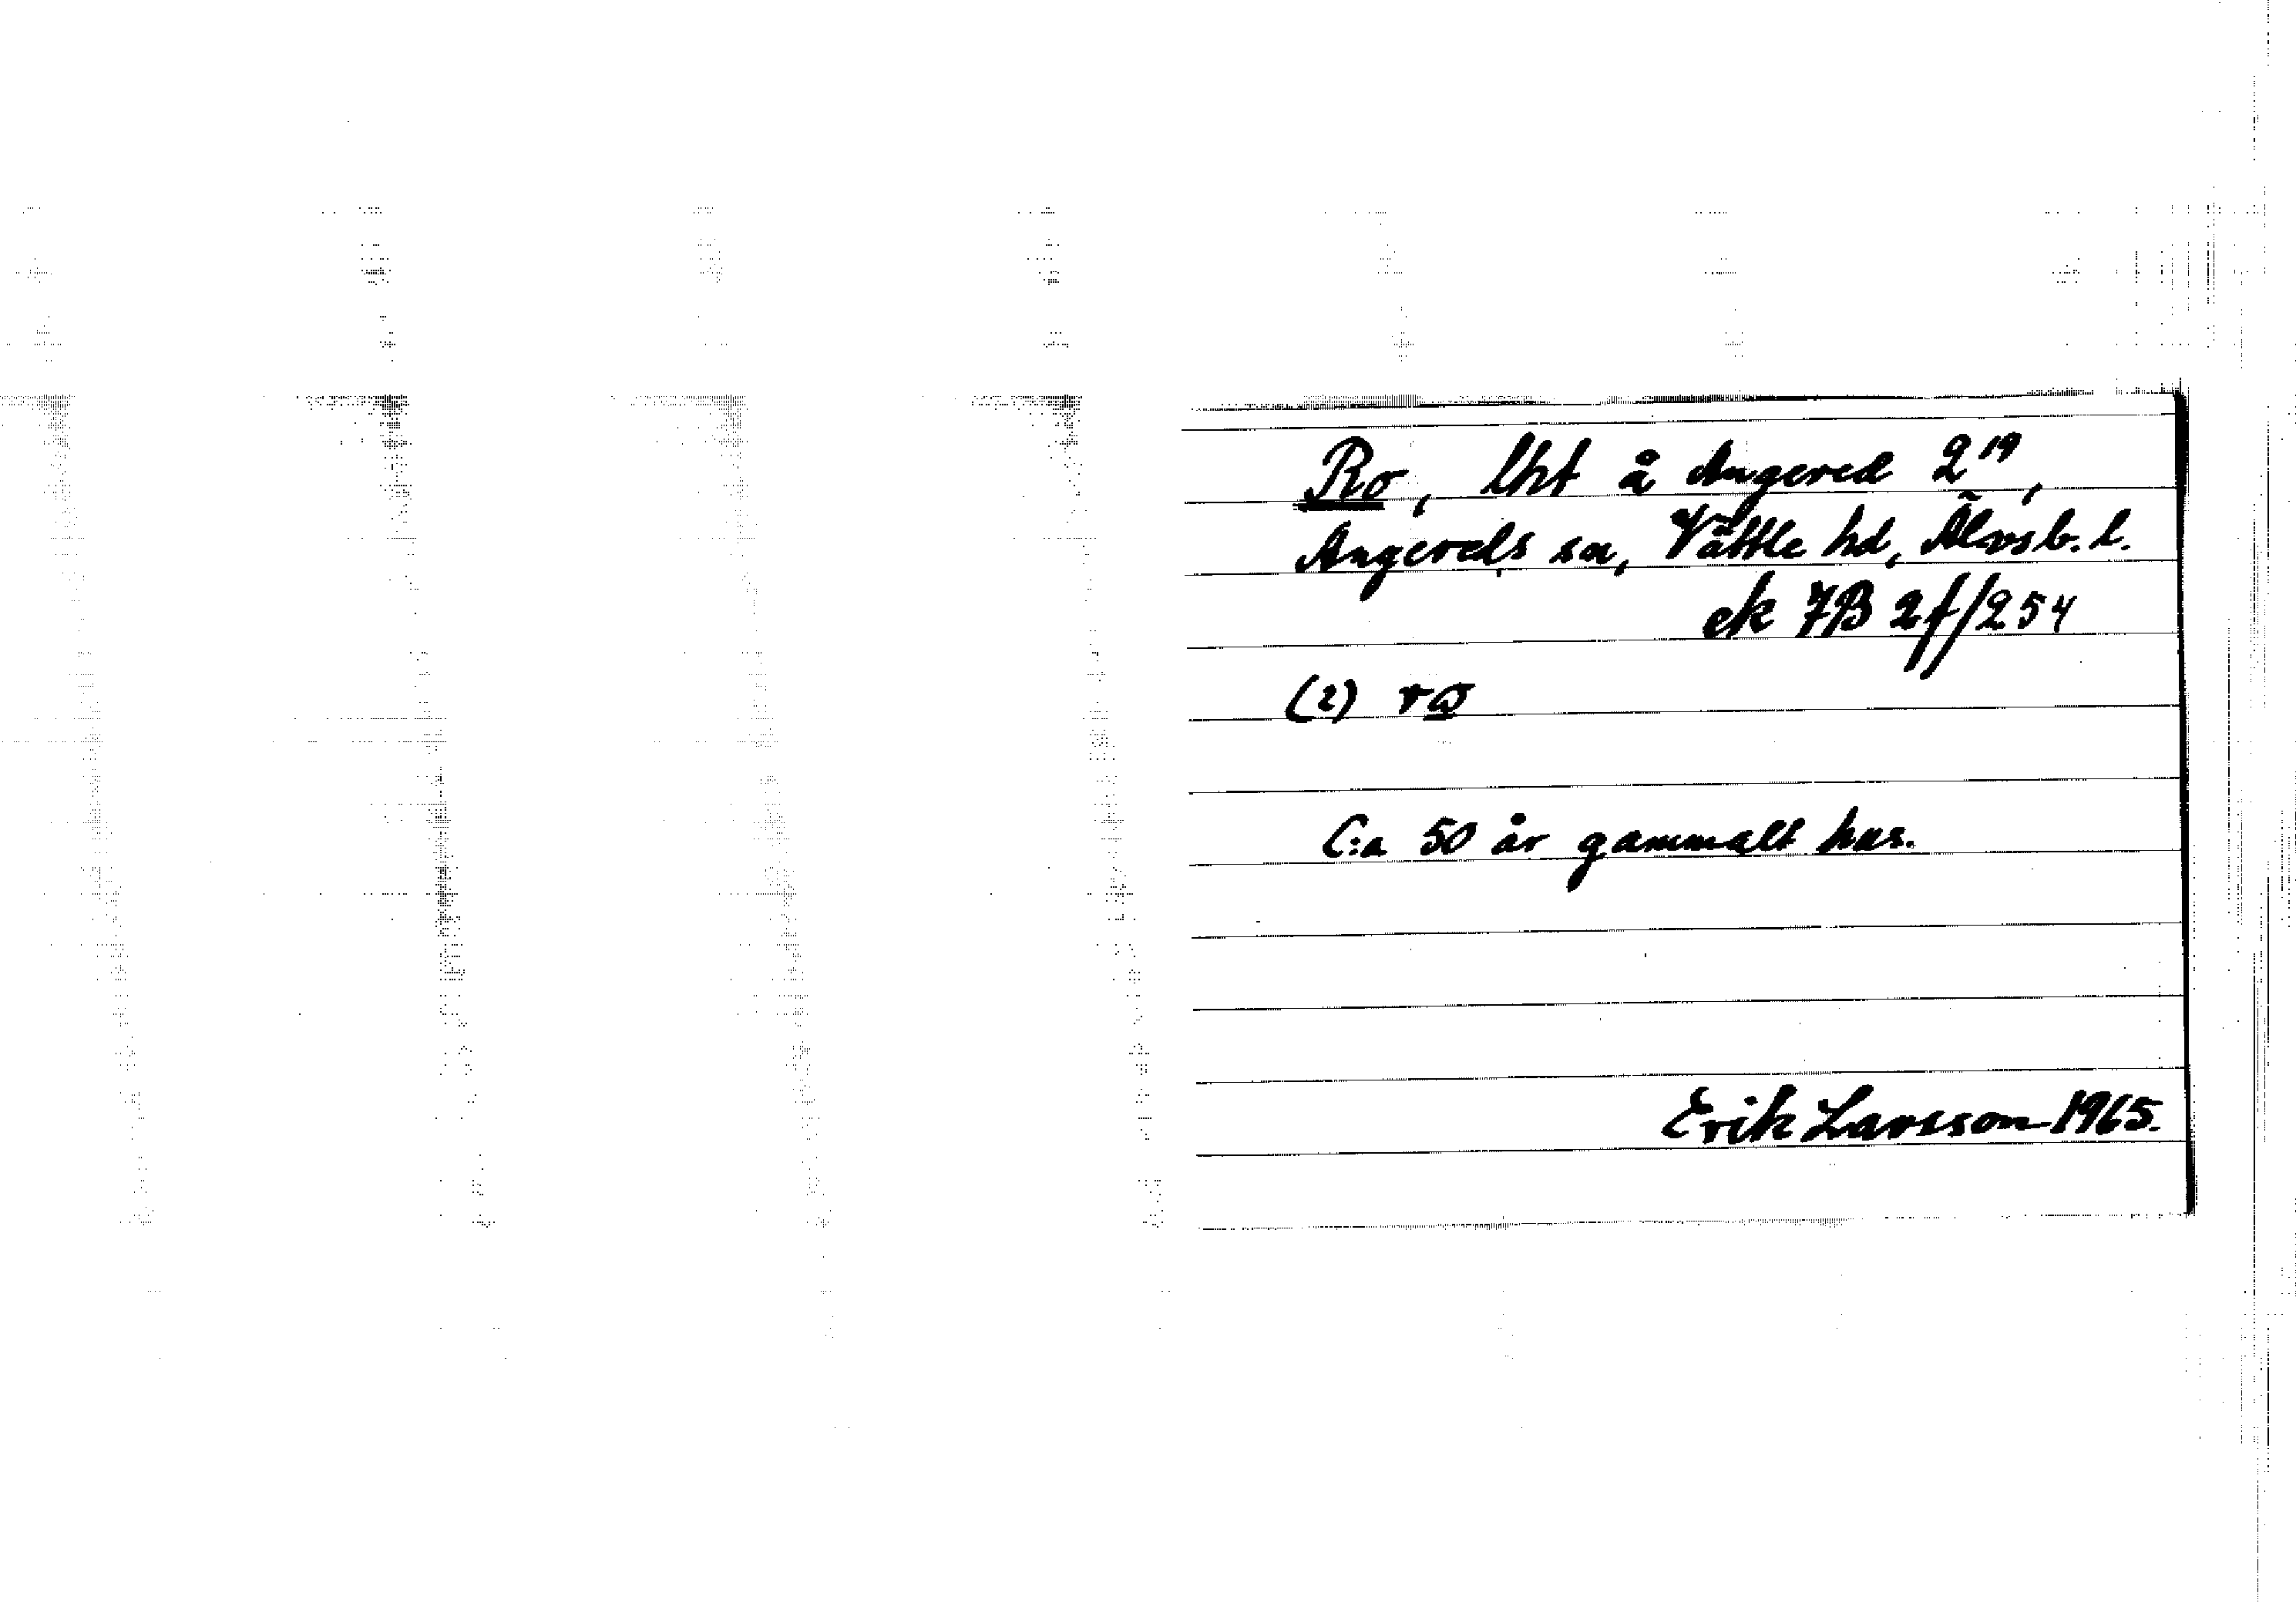 Ro, lht å Angered 2¹⁹,
Angereds sn, Vättle hd, Älvsb. l.
ek 7B 2f/254
(2)
C:a 50 år gammalt hus.
Erik Larsson 1965.